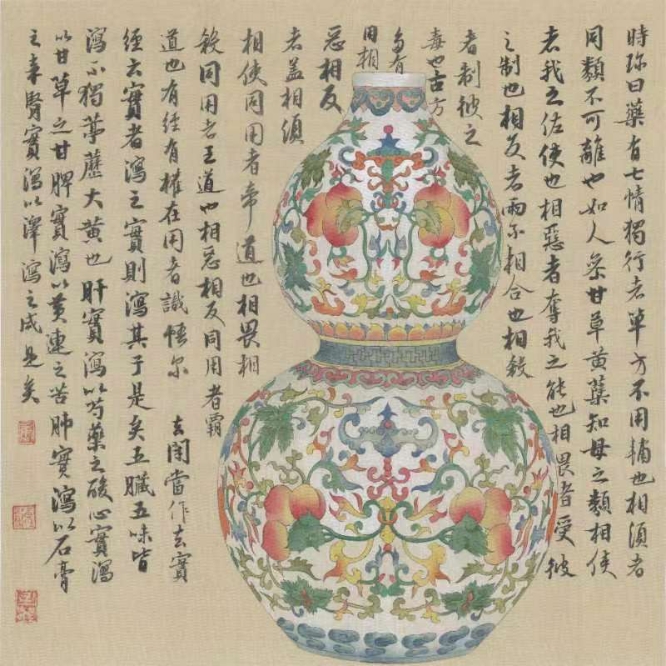 時珍曰藥有七情獨行者單方不用輔也相須者
同類不可離也如人參甘草黃蘗知母之類相使
者我之佐使也相惡者奪我之能也相畏者受彼
之制也相反者兩不相合也相殺
者制彼之
毒也古方
多有
用相
惡相反
者蓋相須
相使同用者帝道也相畏相
殺同用者王道也相惡相反同用者霸
道也有經有權在用者識悟尔 去閏當作去實
經去實者瀉之實則瀉其子是矣五臟五味皆
瀉不獨葶藶大黃也肝實瀉以芍藥之酸心實瀉
以甘草之甘脾實瀉以黃連之苦肺實瀉以石膏
之辛腎實瀉以澤瀉之咸是矣